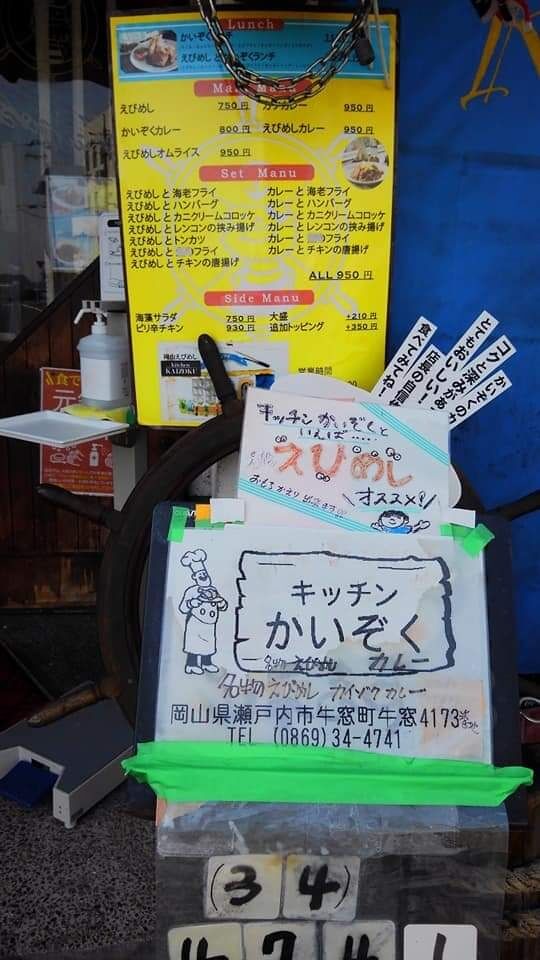 Lunch
かいぞくランチ
えびめしとかいぞくランチ
Main Manu
えびめし 750円 カツカレー 950円
かいぞくカレー 800円 えびめしカレー 950円
えびめしオムライス 950円
Set Manu
えびめしと海老フライ カレーと海老フライ
えびめしとハンバーグ カレーとハンバーグ
えびめしとカニクリームコロッケ カレーとカニクリームコロッケ
えびめしとレンコンの挟み揚げ カレーとレンコンの挟み揚げ
えびめしとトンカツ カレーと フライ
えびめしと フライ カレーとチキンの唐揚げ
えびめしとチキンの唐揚げ
ALL 950円
Side Manu
海藻サラダ 750円 大盛 +210円
ピリ辛チキン 930円 追加トッピング +350円
岡山えびめし
kitchen
KAIZOKU
営業時間
かいぞくの
コクと深みがあ
とてもおいしい!
店長の自信
食べてみてね!
キッチンかいぞくと
いえば....
えびめし
オススメ!
キッチン
かいぞく
名物 えびめし カレー
名物のえびめし カイゾクカレー
岡山県瀬戸内市牛窓町牛窓4173
TEL (0869)34-4741
(34)
4741